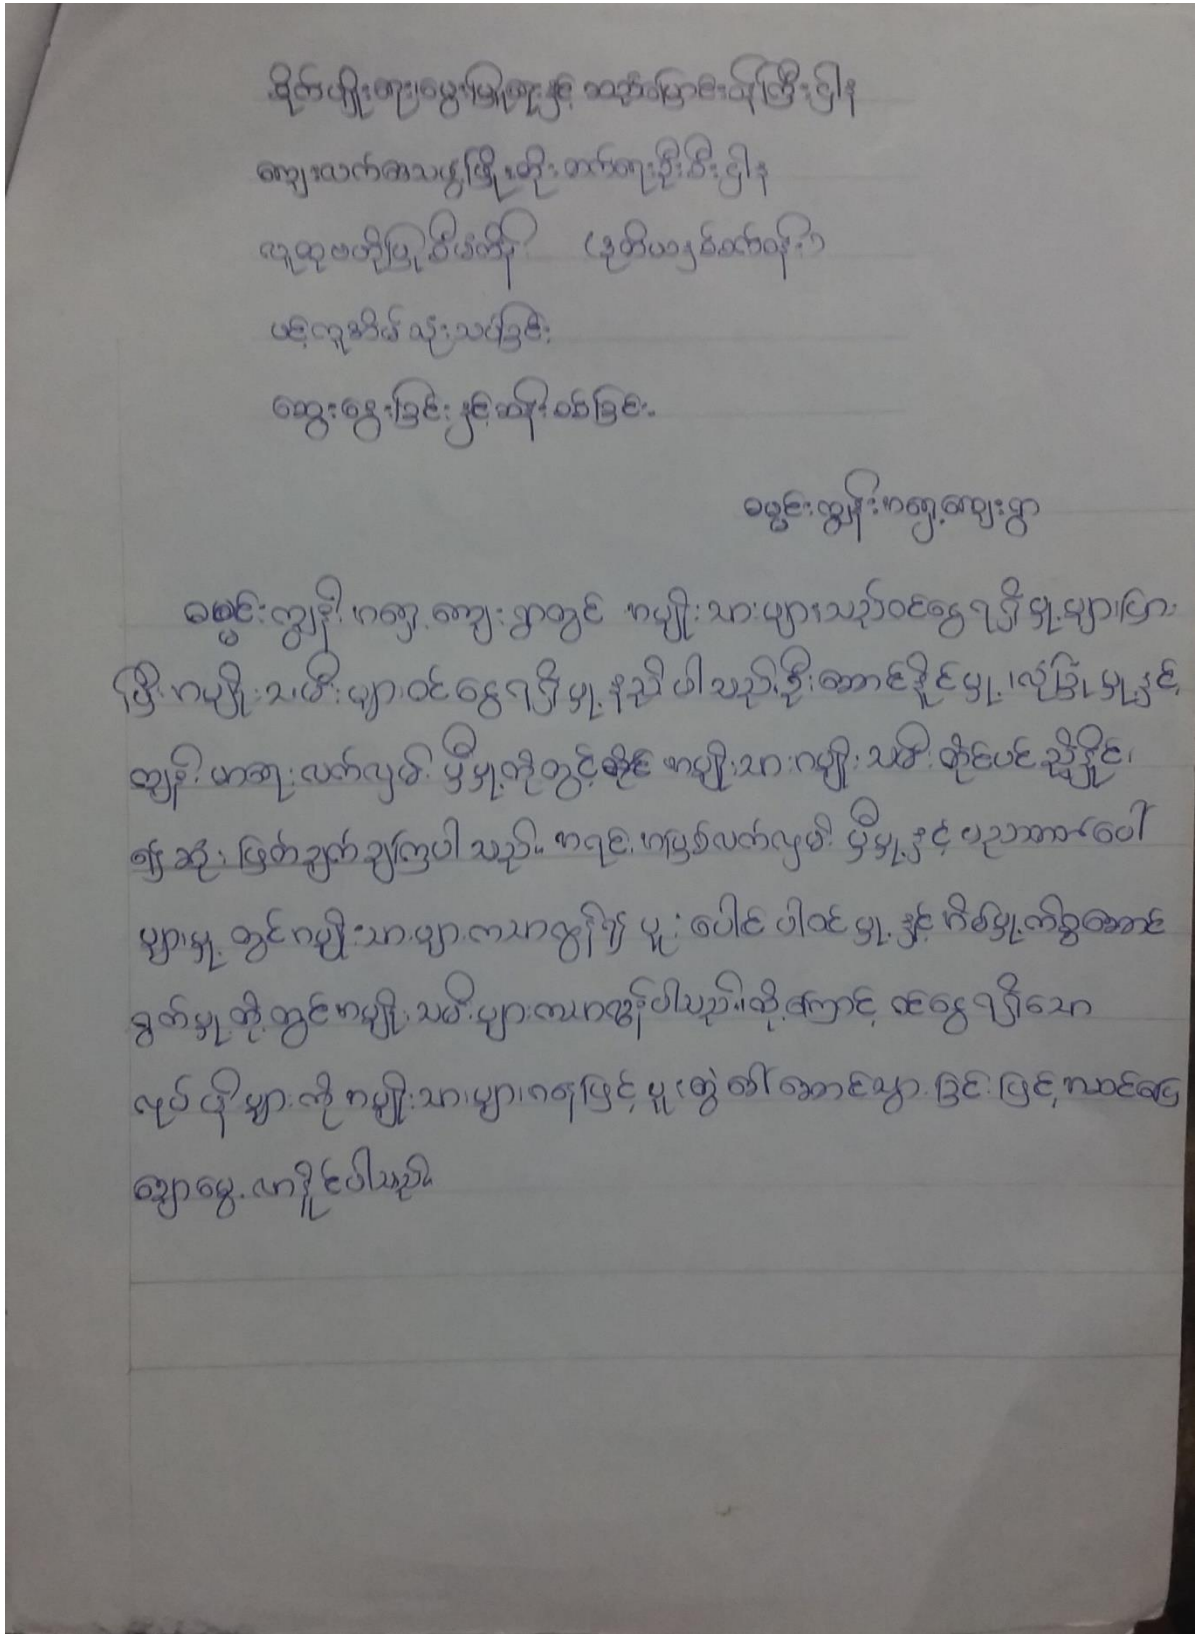 စိုက်ပျိုးရေး၊မွေးမြူရေးနှင့် ဆည်မြောင်းဝန်ကြီးဌာန
ကျေးလက်ဒေသဖွံ့ဖြိုးတိုးတက်ရေးဦးစီးဌာန
လူထုဗဟိုပြုစီမံကိန်း (ဒုတိယနှစ်စက်ဝန်း)
ပင့်ကူအိမ်သုံးသပ်ခြင်း
ဆွေးနွေးခြင်းနှင့်ဆန်းစစ်ခြင်း
စမ္ပင်းကျွန်းအရှေ့ကျေးရွာ
ကျွန်းအရှေ့ကျေးရွာတွင် အမျိုးသားများသည်ဝင်ငွေရရှိမှု့များပြား
ပြီးအမျိုးသမီးများဝင်ငွေရရှိမှု့နည်းပါသည်၊ဦးဆောင်နိုင်မှု့၊လုံခြုံမှု့နှင့်
ကျန်းမာရေးလက်လှမ်းမှီမှု့တို့တွင် အမျိုးသားအမျိုးသမီးတိုင်ပင်ညှိနှိုင်း၊
ဆုံးဖြတ်ချက်ချကြပါသည်။ အရင်းအမြစ်လက်လှမ်းမှီမှု့နှင့် ပညာတတ်ပေါ
များမှု့တွင်အမျိုးသားများကသာလွန်၍ ပူးပေါင်းပါဝင်မှု့နှင့် အိမ်မှု့ကိစ္စဆောင်
ရွက်မှု့တို့တွင်အမျိုးသမီးများကသာလွန်ပါသည်။ထို့ကြောင့် ဝင်ငွေရရှိသော
လုပ်ငန်းများကို အမျိုးသားများအနေဖြင့် ပူးတွဲခေါ်ဆောင်သွားခြင်းဖြင့် အဆင်ပြေ
ချောမွေ့လာနိုင်ပါသည်။